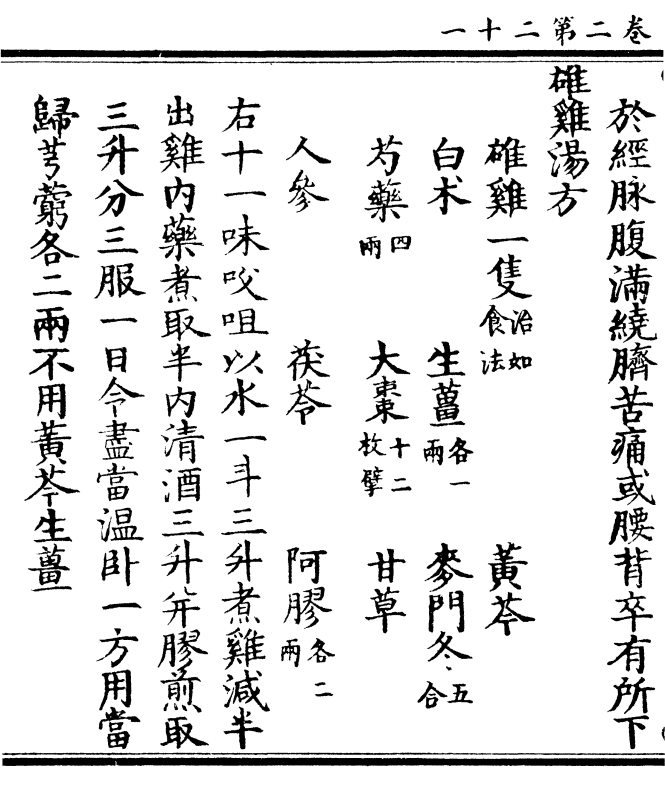 卷二第二十一
於經脉腹滿繞臍苦痛或腰背卒有所下
碓雞湯方
碓雞一隻治如食法 黃芩
白朮 生薑各一兩 麥門冬五合
芍藥四兩 大棗十二枚擘 甘草
人參 茯苓 阿膠各二兩
右十一味㕮咀以水一斗三升煮雞減半
出雞內藥煮取半內清酒三升并膠煎取
三升分三服一日令盡當溫臥一方用當
歸芎藭各二兩不用黃芩生薑